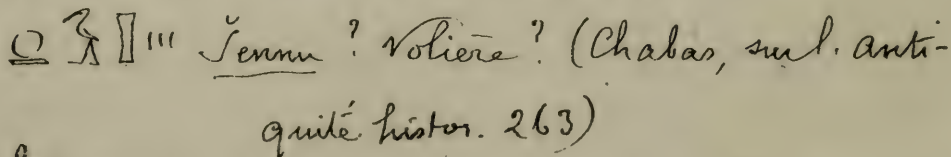 Šennu? Volière? (Chabas, sur l. anti-
quité histor. 263)